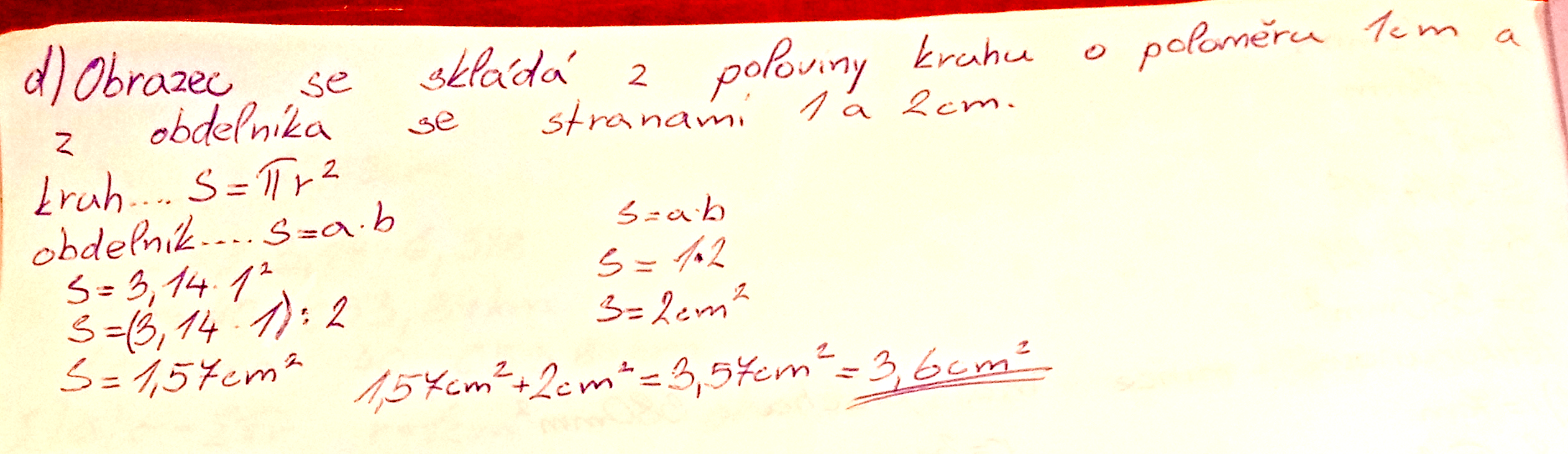 d) Obrazec se skládá z poloviny kruhu o poloměru 1cm a
z obdelníka se stranami 1 a 2cm.
kruh.... S=πr²
obdelník.... S=a·b
S=3,14·1²
S=(3,14·1):2
S=1,57cm²
S=a·b
S=1·2
S=2cm²
1,57cm²+2cm²=3,57cm²=3,6cm²